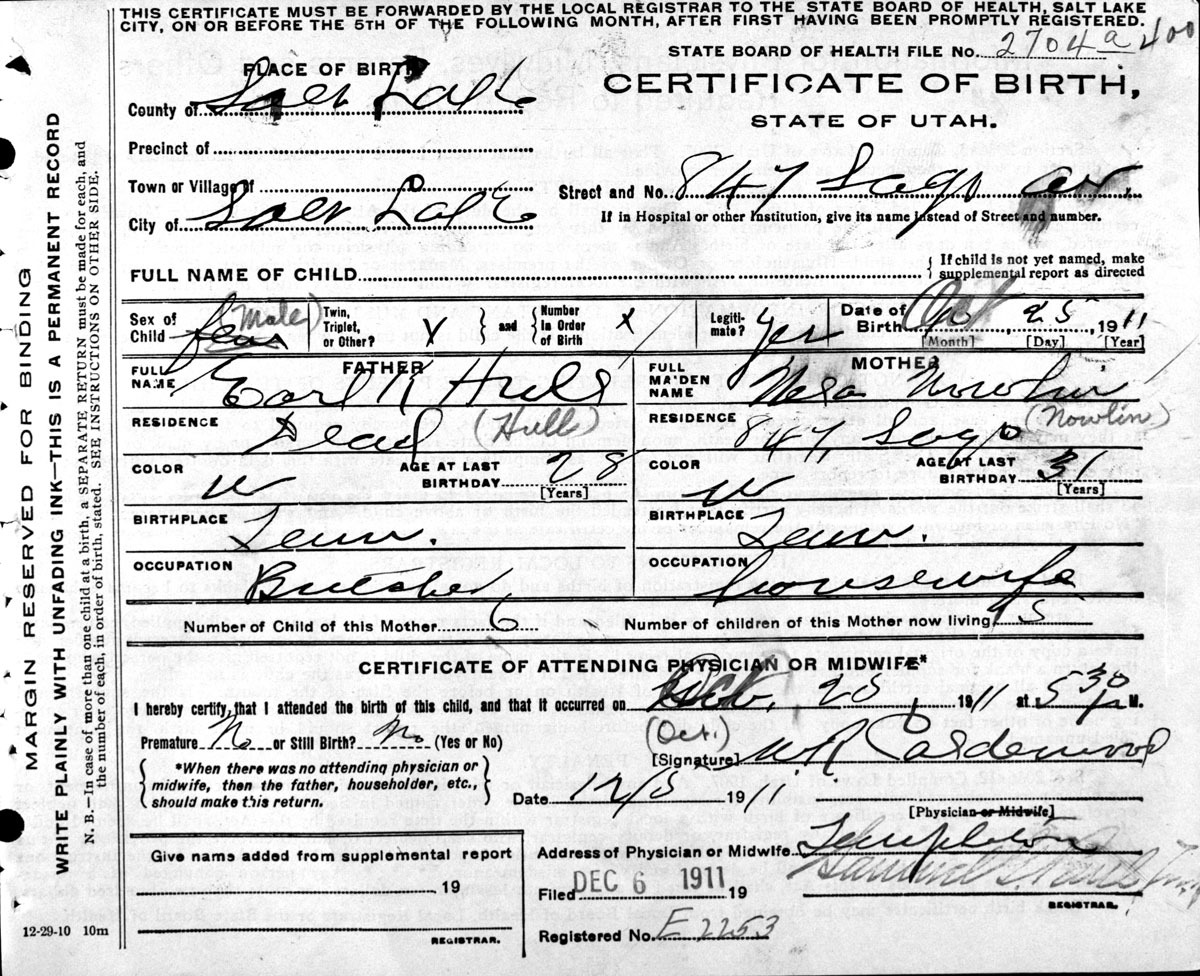 THIS CERTIFICATE MUST BE FORWARDED BY THE LOCAL REGISTRAR TO THE STATE BOARD OF HEALTH, SALT LAKE
CITY, ON OR BEFORE THE 5TH OF THE FOLLOWING MONTH, AFTER FIRST HAVING BEEN PROMPTLY REGISTERED.
STATE BOARD OF HEALTH FILE No. 2704 a 400
PLACE OF BIRTH
CERTIFICATE OF BIRTH,
County of Salt Lake
STATE OF UTAH.
Precinct of
Town or Village of
Street and No. 847
City of Salt Lake
If in Hospital or other Institution, give its name instead of Street and number.
FULL NAME OF CHILD
If child is not yet named, make supplemental report as directed
Sex of Child Male
Twin, Triplet, or Other?
and
Number In Order of Birth x
Legitimate? Yes
Date of Birth Oct 25 1911
[Month] [Day] [Year]
FATHER
FULL NAME Earl K Hull
RESIDENCE Dead (Hull)
COLOR W
AGE AT LAST BIRTHDAY 28
[Years]
BIRTHPLACE Tenn.
OCCUPATION Butcher
MOTHER
FULL MAIDEN NAME Nowlin
RESIDENCE 847 (Nowlin)
COLOR W
AGE AT LAST BIRTHDAY 31
[Years]
BIRTHPLACE Tenn.
OCCUPATION housewife
Number of Child of this Mother 6
Number of children of this Mother now living 5
CERTIFICATE OF ATTENDING PHYSICIAN OR MIDWIFE*
I hereby certify, that I attended the birth of this child, and that it occurred on 25, 1911 at 5 30 M.
(Oct.)
Premature No or Still Birth? No (Yes or No)
[Signature] W R Calderwood
*When there was no attending physician or
midwife, then the father, householder, etc.,
should make this return.
Date 12/5 1911
[Physician or Midwife]
Give name added from supplemental report
19
REGISTRAR.
Address of Physician or Midwife Templeton
Filed DEC 6 1911 19
REGISTRAR.
Registered No. E 2253
12-29-10 10m
MARGIN RESERVED FOR BINDING
WRITE PLAINLY WITH UNFADING INK—THIS IS A PERMANENT RECORD
N. B. In case of more than one child at a birth, a SEPARATE RETURN must be made for each, and
the number of each, in order of birth, stated. SEE INSTRUCTIONS ON OTHER SIDE.